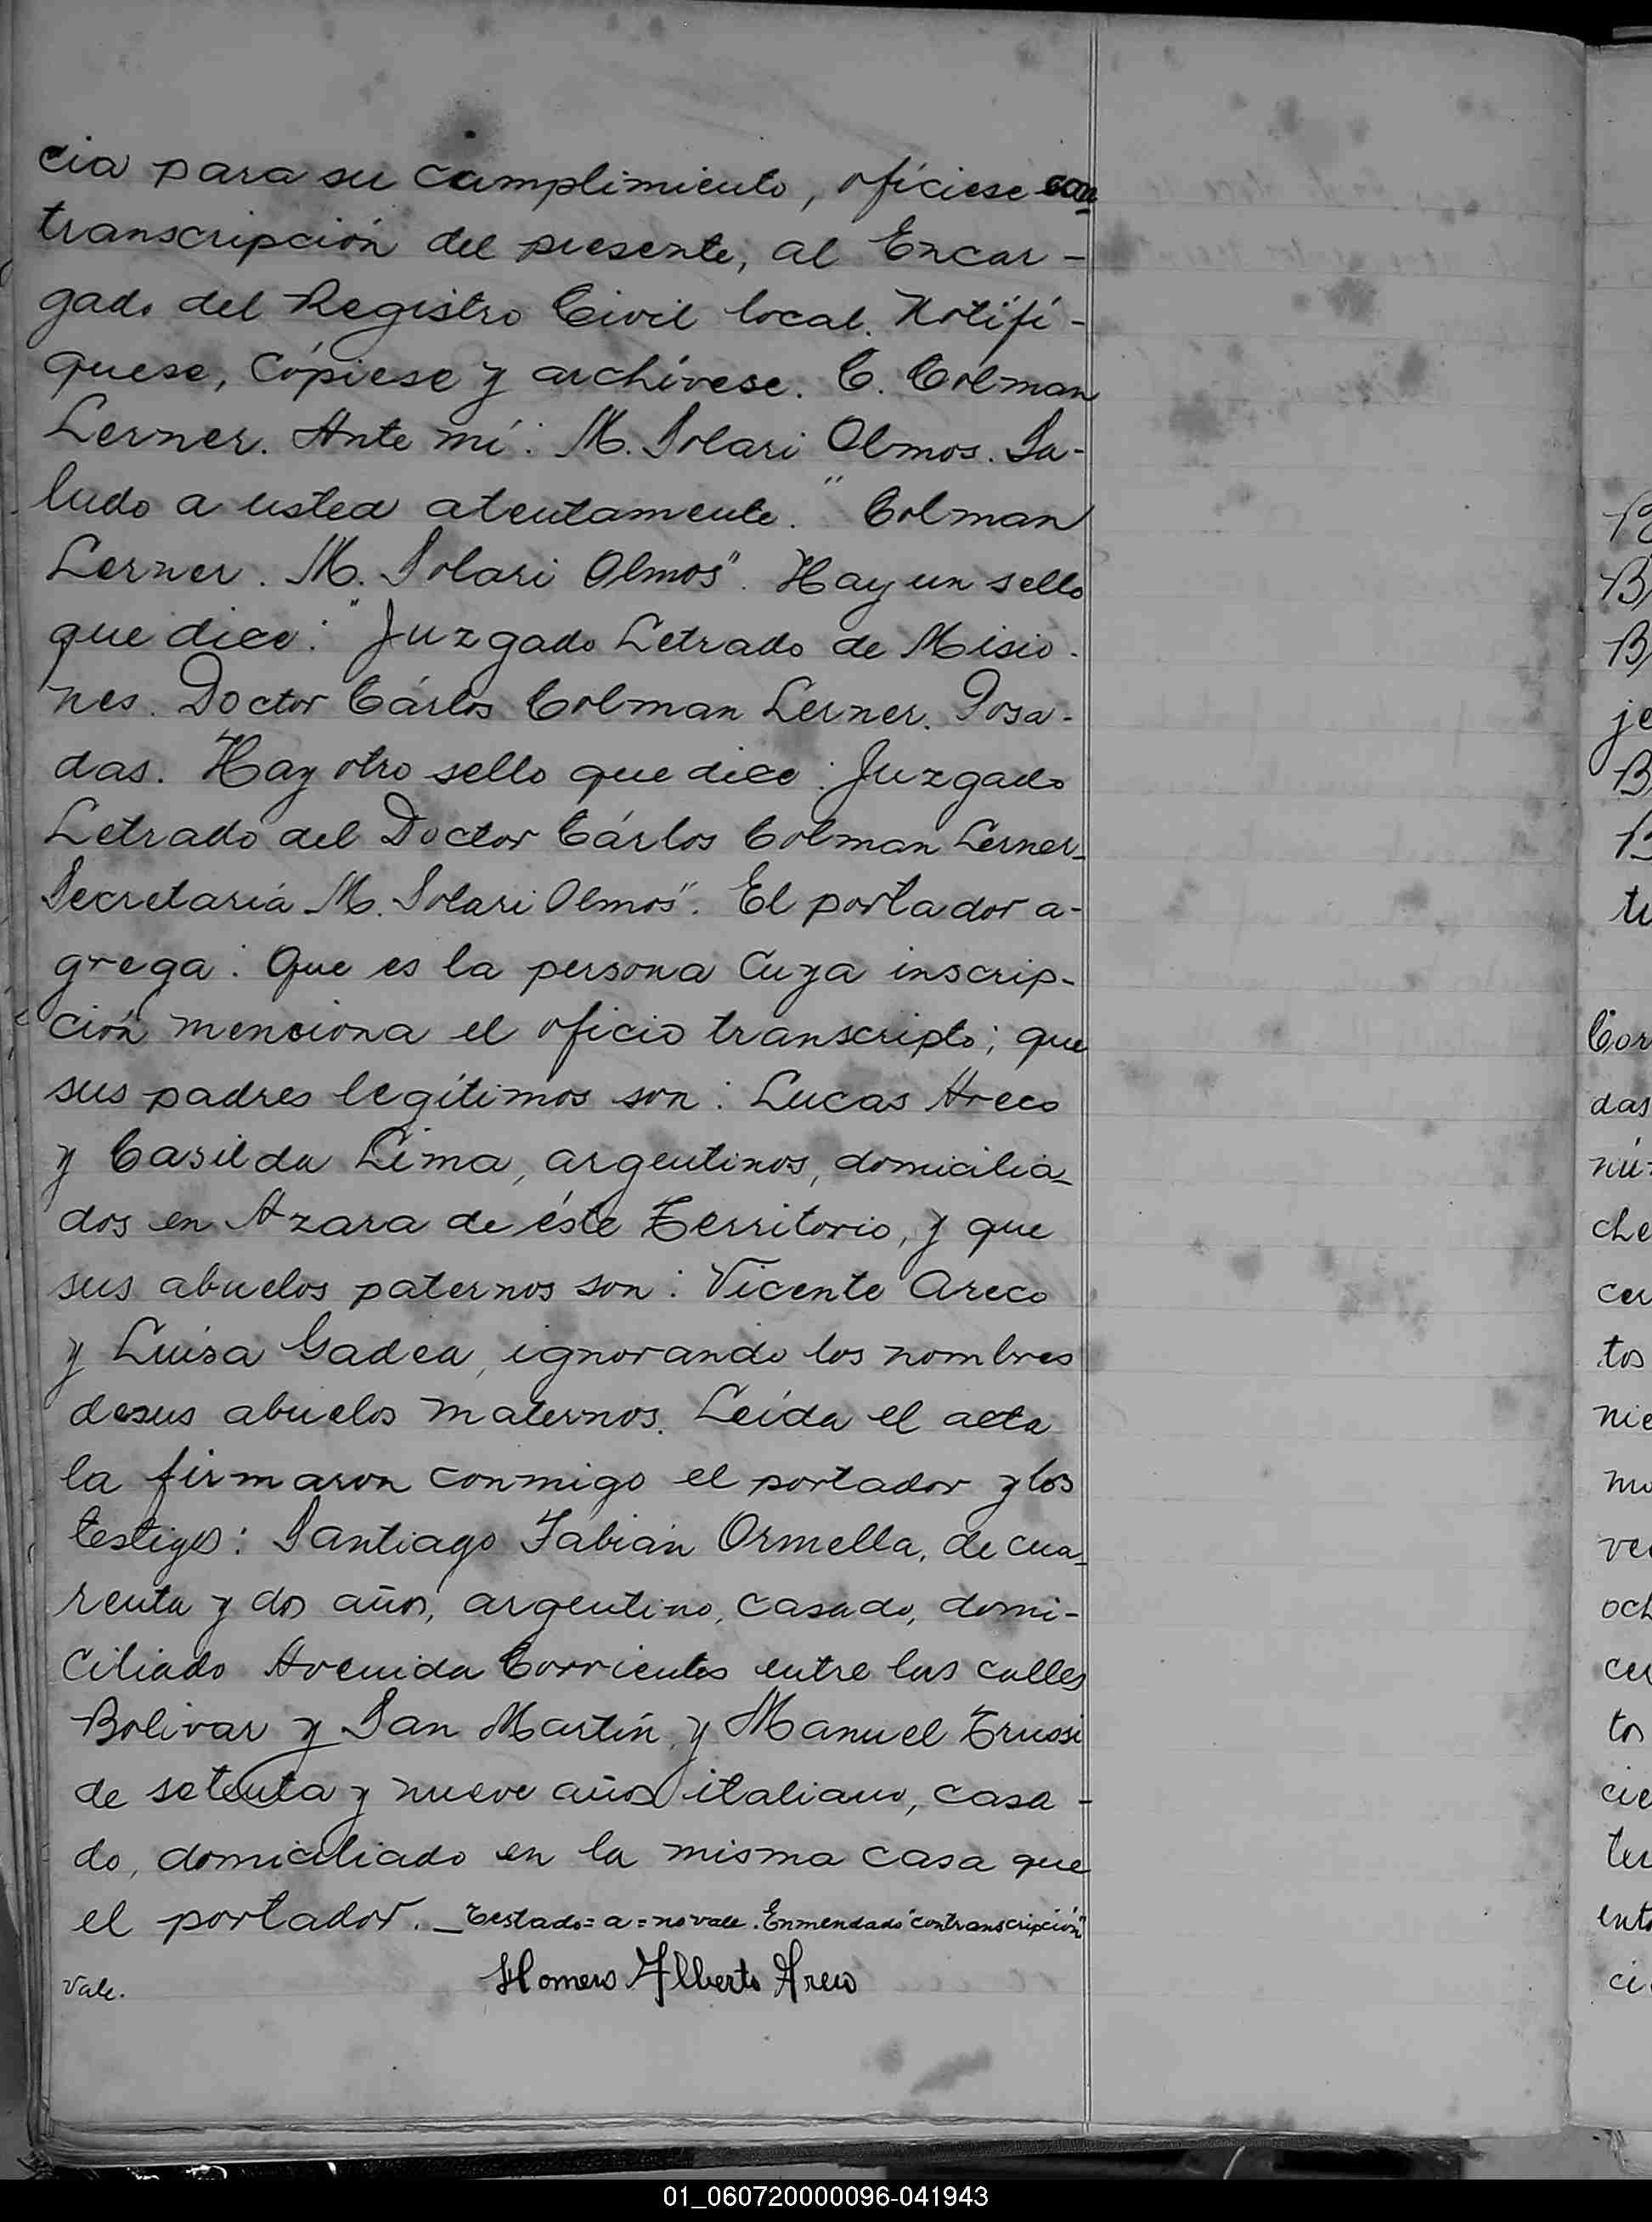 cia para su cumplimiento, ofíciese con
transcripción del presente, al Encar-
gado del Registro Civil local. Notifí-
quese, cópiese y archívese. C. Colman
Lerner. Ante mí: M. Solari Olmos. Sa-
ludo a usted atentamente." Colman
Lerner. M. Solari Olmos". Hay un sello
que dice: "Juzgado Letrado de Misio-
nes. Doctor Cárlos Colman Lerner. Posa-
das. Hay otro sello que dice: Juzgado
Letrado del Doctor Cárlos Colman Lerner-
Secretaría M. Solari Olmos". El portador a-
grega: Que es la persona cuya inscrip-
ción menciona el oficio transcripto; que
sus padres legítimos son: Lucas Areco
y Casilda Lima, argentinos, domicilia-
dos en Azara de éste Territorio, y que
sus abuelos paternos son: Vicente Areco
y Luisa Gadea, ignorando los nombres
de sus abuelos maternos. Leída el acta
la firmaron conmigo el portador y los
testigos: Santiago Fabián Ormella, de cua-
renta y dos años, argentino, casado, domi-
ciliado Avenida Corrientes entre las calles
Bolivar y San Martín y Manuel Trussi
de setenta y nueve años italiano, casa-
do, domiciliado en la misma casa que
el portador. _ Testado=a=no vale. Enmendado "con transcripción"
Vale.
Homero Alberto Areco
B
B
je
B
tu
Cor
das
nú-
che
cer
tos
nie
mo
ve
och
ce
tos
cie
ter
ento
ci
01_060720000096-041943